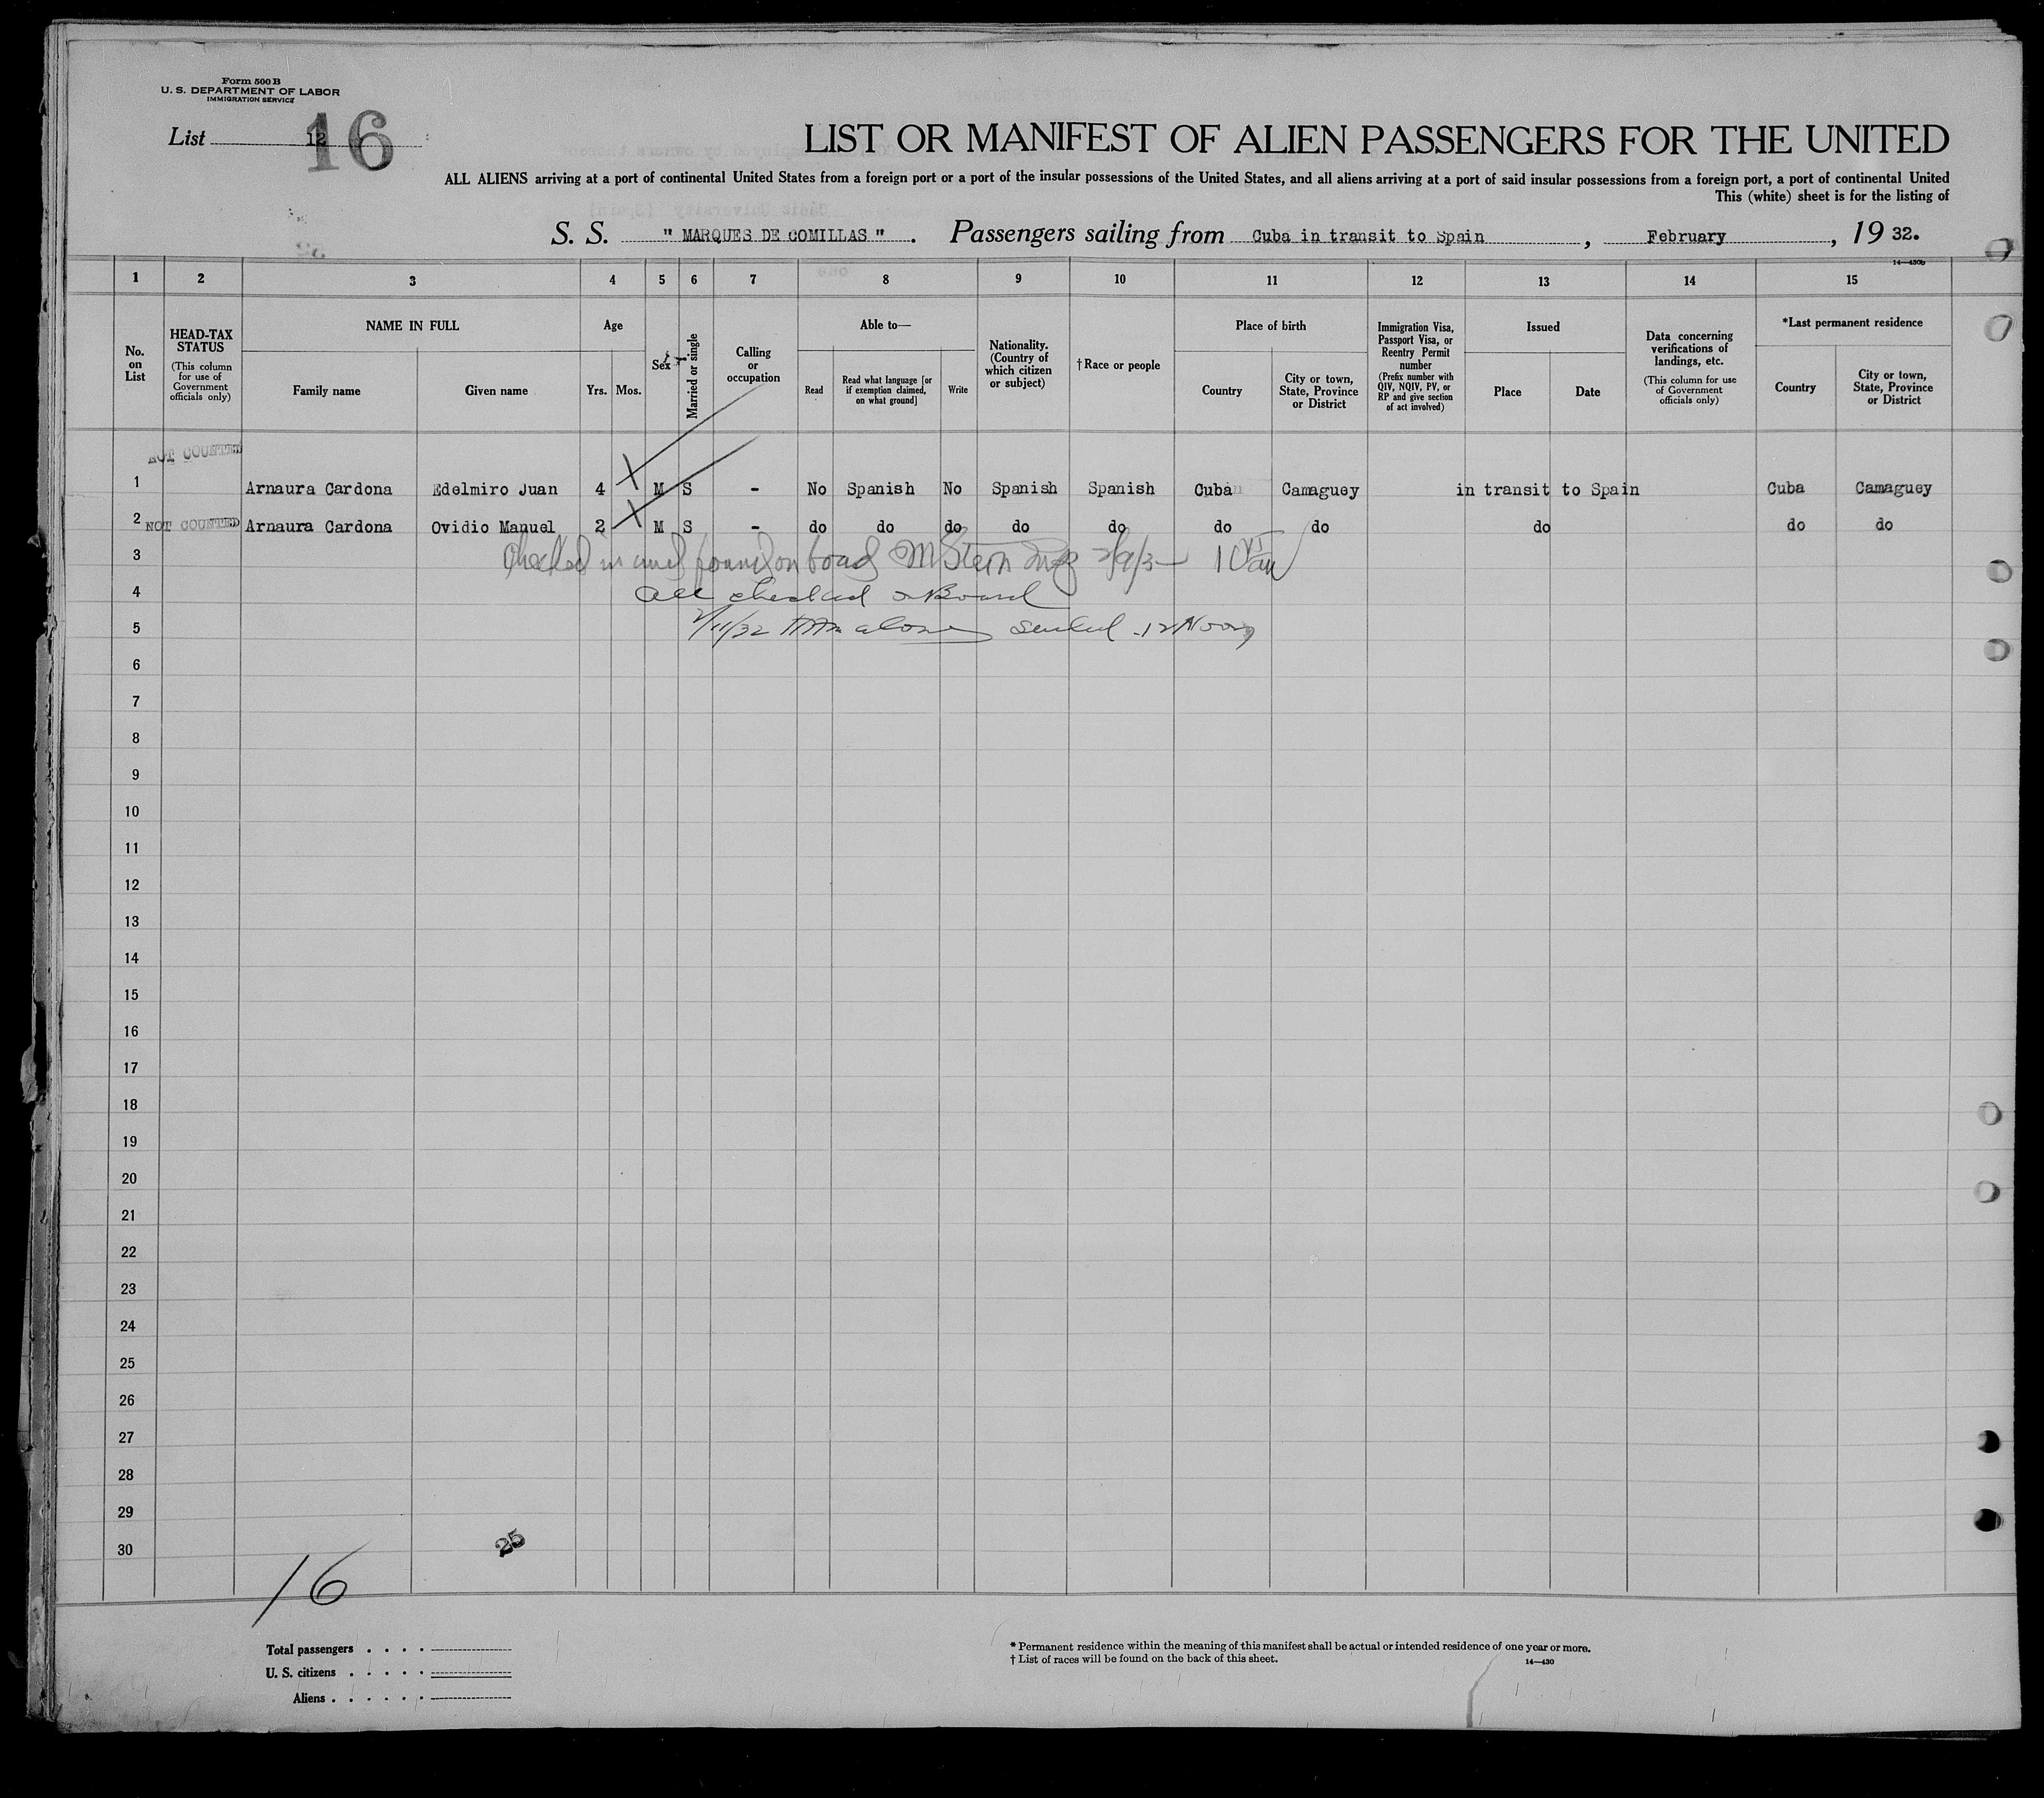 Form 500 B
U. S. DEPARTMENT OF LABOR
IMMIGRATION SERVICE
List 12 16
LIST OR MANIFEST OF ALIEN PASSENGERS FOR THE UNITED
ALL ALIENS arriving at a port of continental United States from a foreign port or a port of the insular possessions of the United States, and all aliens arriving at a port of said insular possessions from a foreign port, a port of continental United
This (white) sheet is for the listing of
S. S. " MARQUES DE COMILLAS " . Passengers sailing from Cuba in transit to Spain , February , 19 32.
14—430b
1 2 3 4 5 6 7 8 9 10 11 12 13 14 15
No. on List
HEAD-TAX STATUS (This column for use of Government officials only)
NAME IN FULL
Family name Given name
Age
Yrs. Mos.
Sex
Married or single
Calling or occupation
Able to—
Read Read what language [or if exemption claimed, on what ground] Write
Nationality. (Country of which citizen or subject)
†Race or people
Place of birth
Country City or town, State, Province or District
Immigration Visa, Passport Visa, or Reentry Permit number (Prefix number with QIV, NQIV, PV, or RP and give section of act involved)
Issued
Place Date
Data concerning verifications of landings, etc. (This column for use of Government officials only)
*Last permanent residence
Country City or town, State, Province or District
NOT COUNTED
1 Arnaura Cardona Edelmiro Juan 4 M S - No Spanish No Spanish Spanish Cuba Camaguey in transit to Spain Cuba Camaguey
2 NOT COUNTED Arnaura Cardona Ovidio Manuel 2 M S - do do do do do do do do do do
3 Checked in and found on board M Stern
4 All checked on Board
5 2/11/32 sailed 12 Noon
6
7
8
9
10
11
12
13
14
15
16
17
18
19
20
21
22
23
24
25
26
27
28
29
30
25
16
Total passengers . . . .
U. S. citizens . . . . .
Aliens . . . . . .
* Permanent residence within the meaning of this manifest shall be actual or intended residence of one year or more.
† List of races will be found on the back of this sheet.
14—430